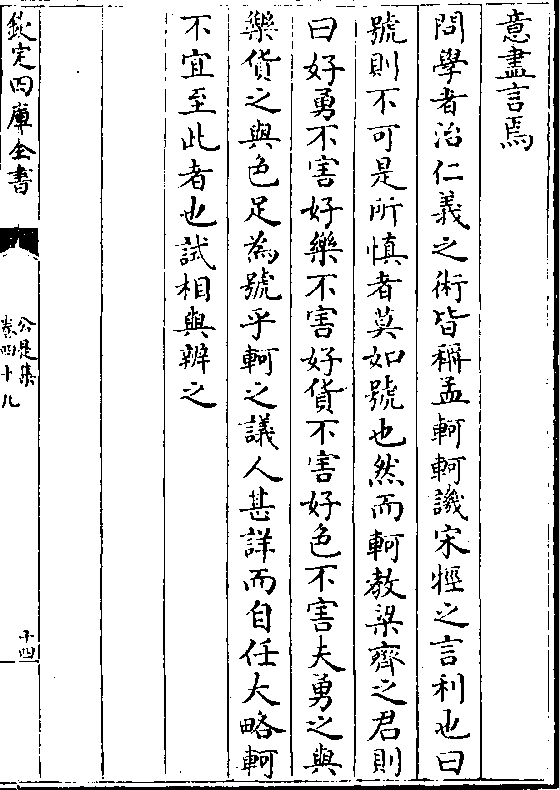 意盡言焉
問學者治仁義之術皆稱孟軻軻譏宋牼之言利也曰
號則不可是所慎者莫如號也然而軻教梁齊之君則
曰好勇不害好樂不害好貨不害好色不害夫勇之與
樂貨之與色足為號乎軻之議人甚詳而自任大略軻
不宜至此者也試相與辨之
欽定四庫全書
公是集
卷四十九
十四